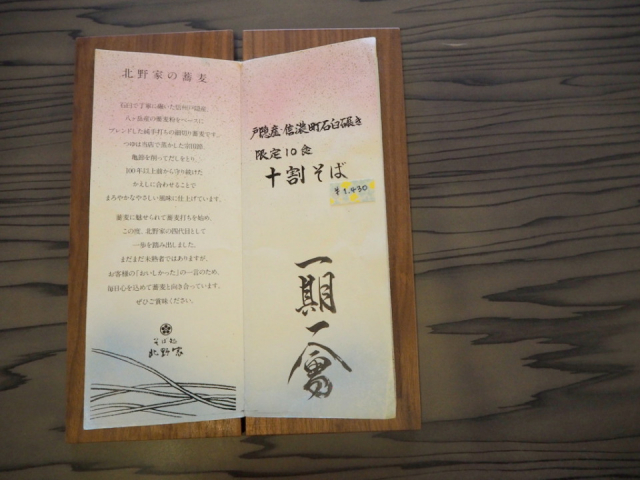 北野家の蕎麦
石臼で丁寧に碾いた信州戸隠産、
八ヶ岳産の蕎麦粉をベースに
ブレンドした純手打ちの細切り蕎麦です。
つゆは当店で蒸かした宗田節、
亀節を削ってだしをとり、
100年以上前から守り続けた
かえしに合わせることで
まろやかなやさしい風味に仕上げています。
蕎麦に魅せられて蕎麦打ちを始め、
この度、北野家の四代目として
一歩を踏み出しました。
まだまだ未熟者ではありますが、
お客様の「おいしかった」の一言のため、
毎日心を込めて蕎麦と向き合っています。
ぜひご賞味ください。
そば処
北野家
戸隠産・信濃町石臼碾き
限定10食
十割そば
¥1,430
一期一會